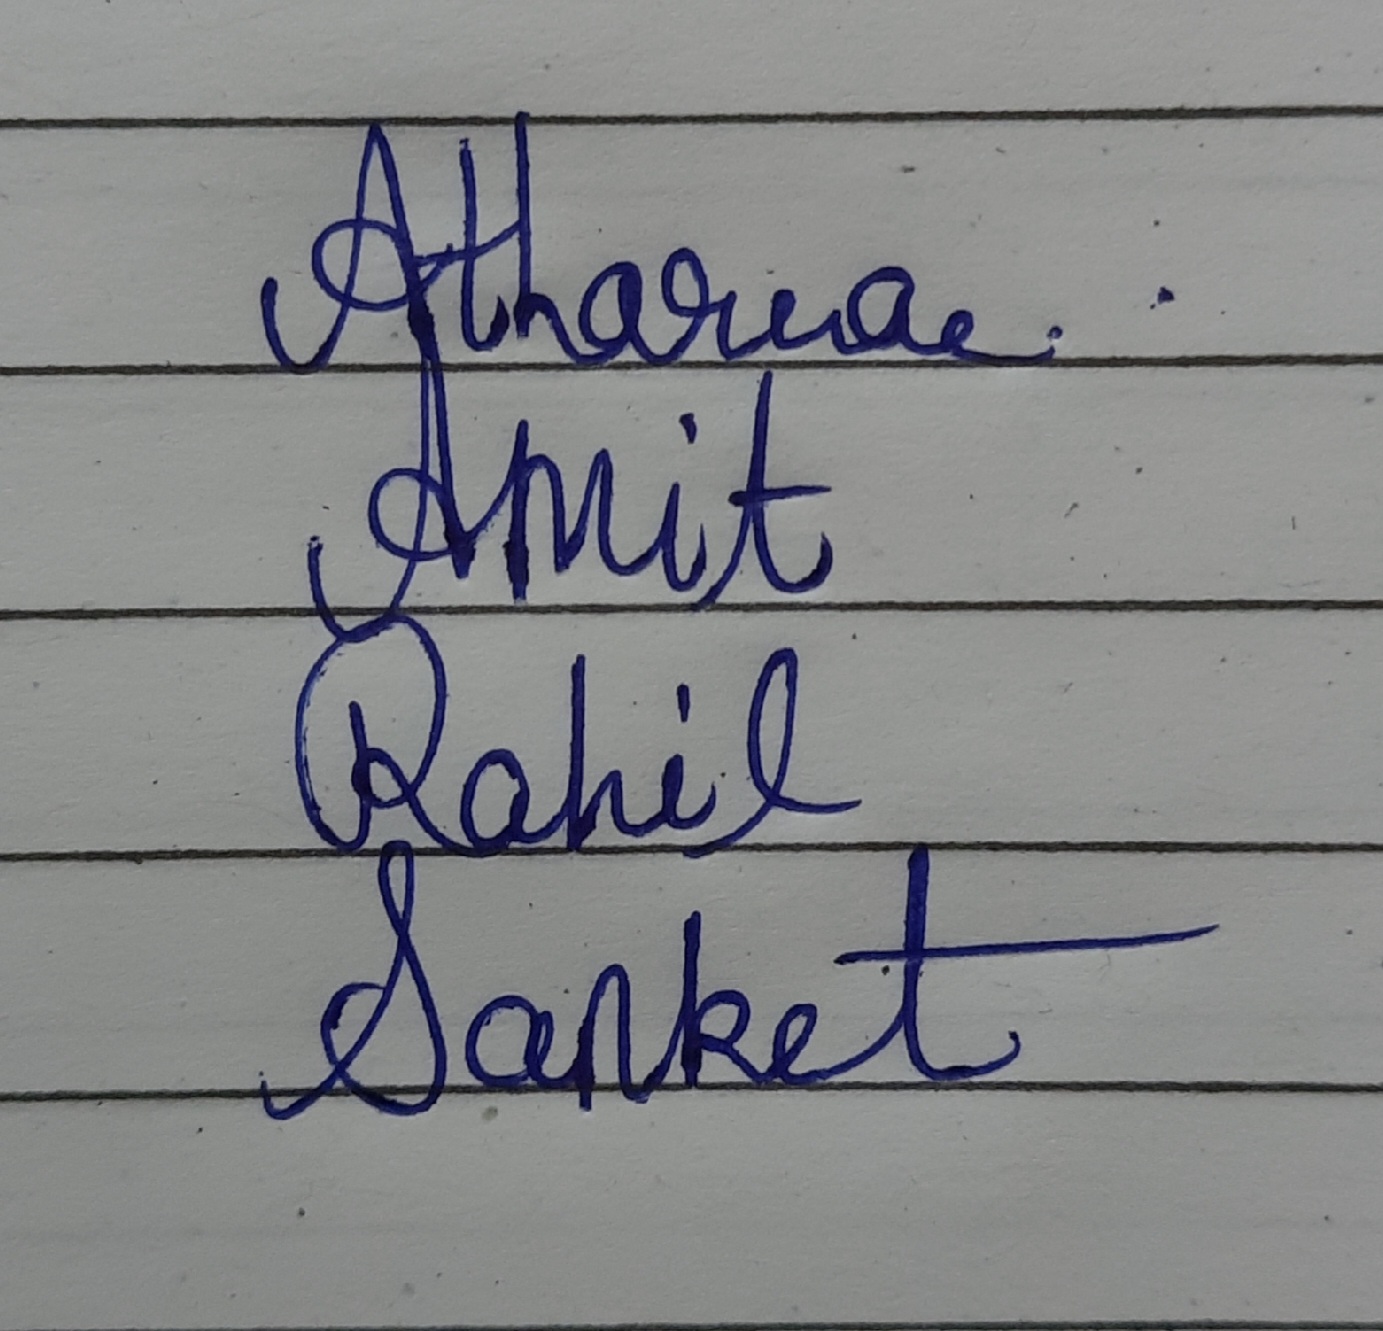 Atharva.
Amit
Rahil
Sanket